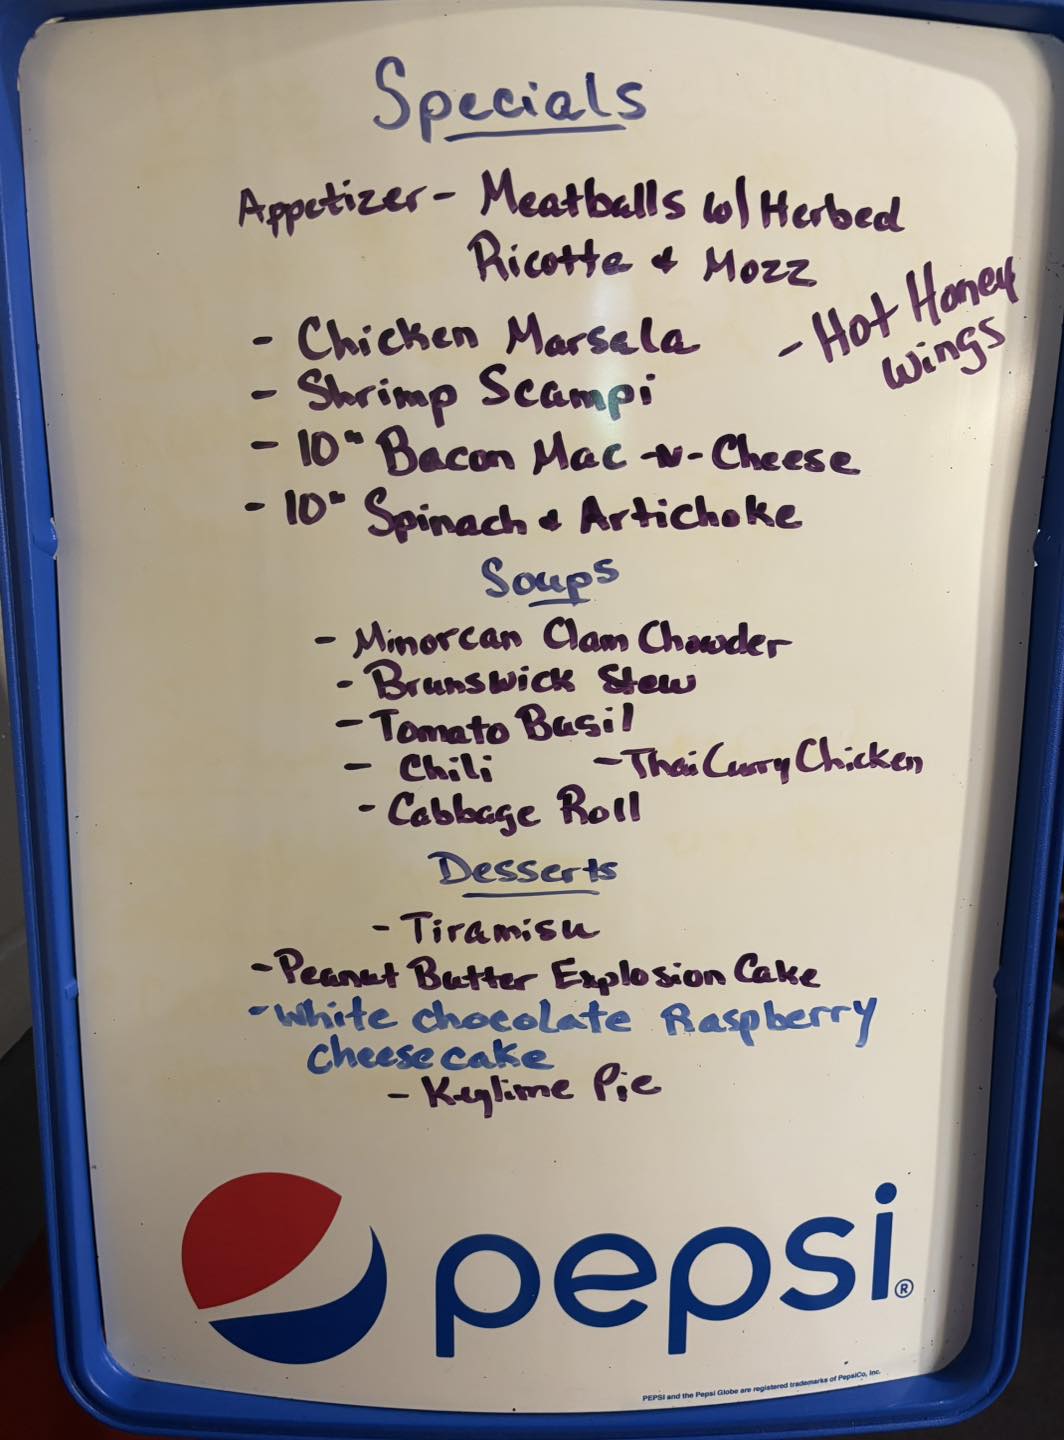 Specials
Appetizer - Meatballs w/ Herbed
Ricotta & Mozz
- Hot Honey
Wings
- Chicken Marsala
- Shrimp Scampi
- 10" Bacon Mac -N- Cheese
- 10" Spinach & Artichoke
Soups
- Minorcan Clam Chowder
- Brunswick Stew
- Tomato Basil
- Chili - Thai Curry Chicken
- Cabbage Roll
Desserts
- Tiramisu
- Peanut Butter Explosion Cake
- White chocolate Raspberry
cheesecake
- Keylime Pie
pepsi®
PEPSI and the Pepsi Globe are registered trademarks of PepsiCo, Inc.